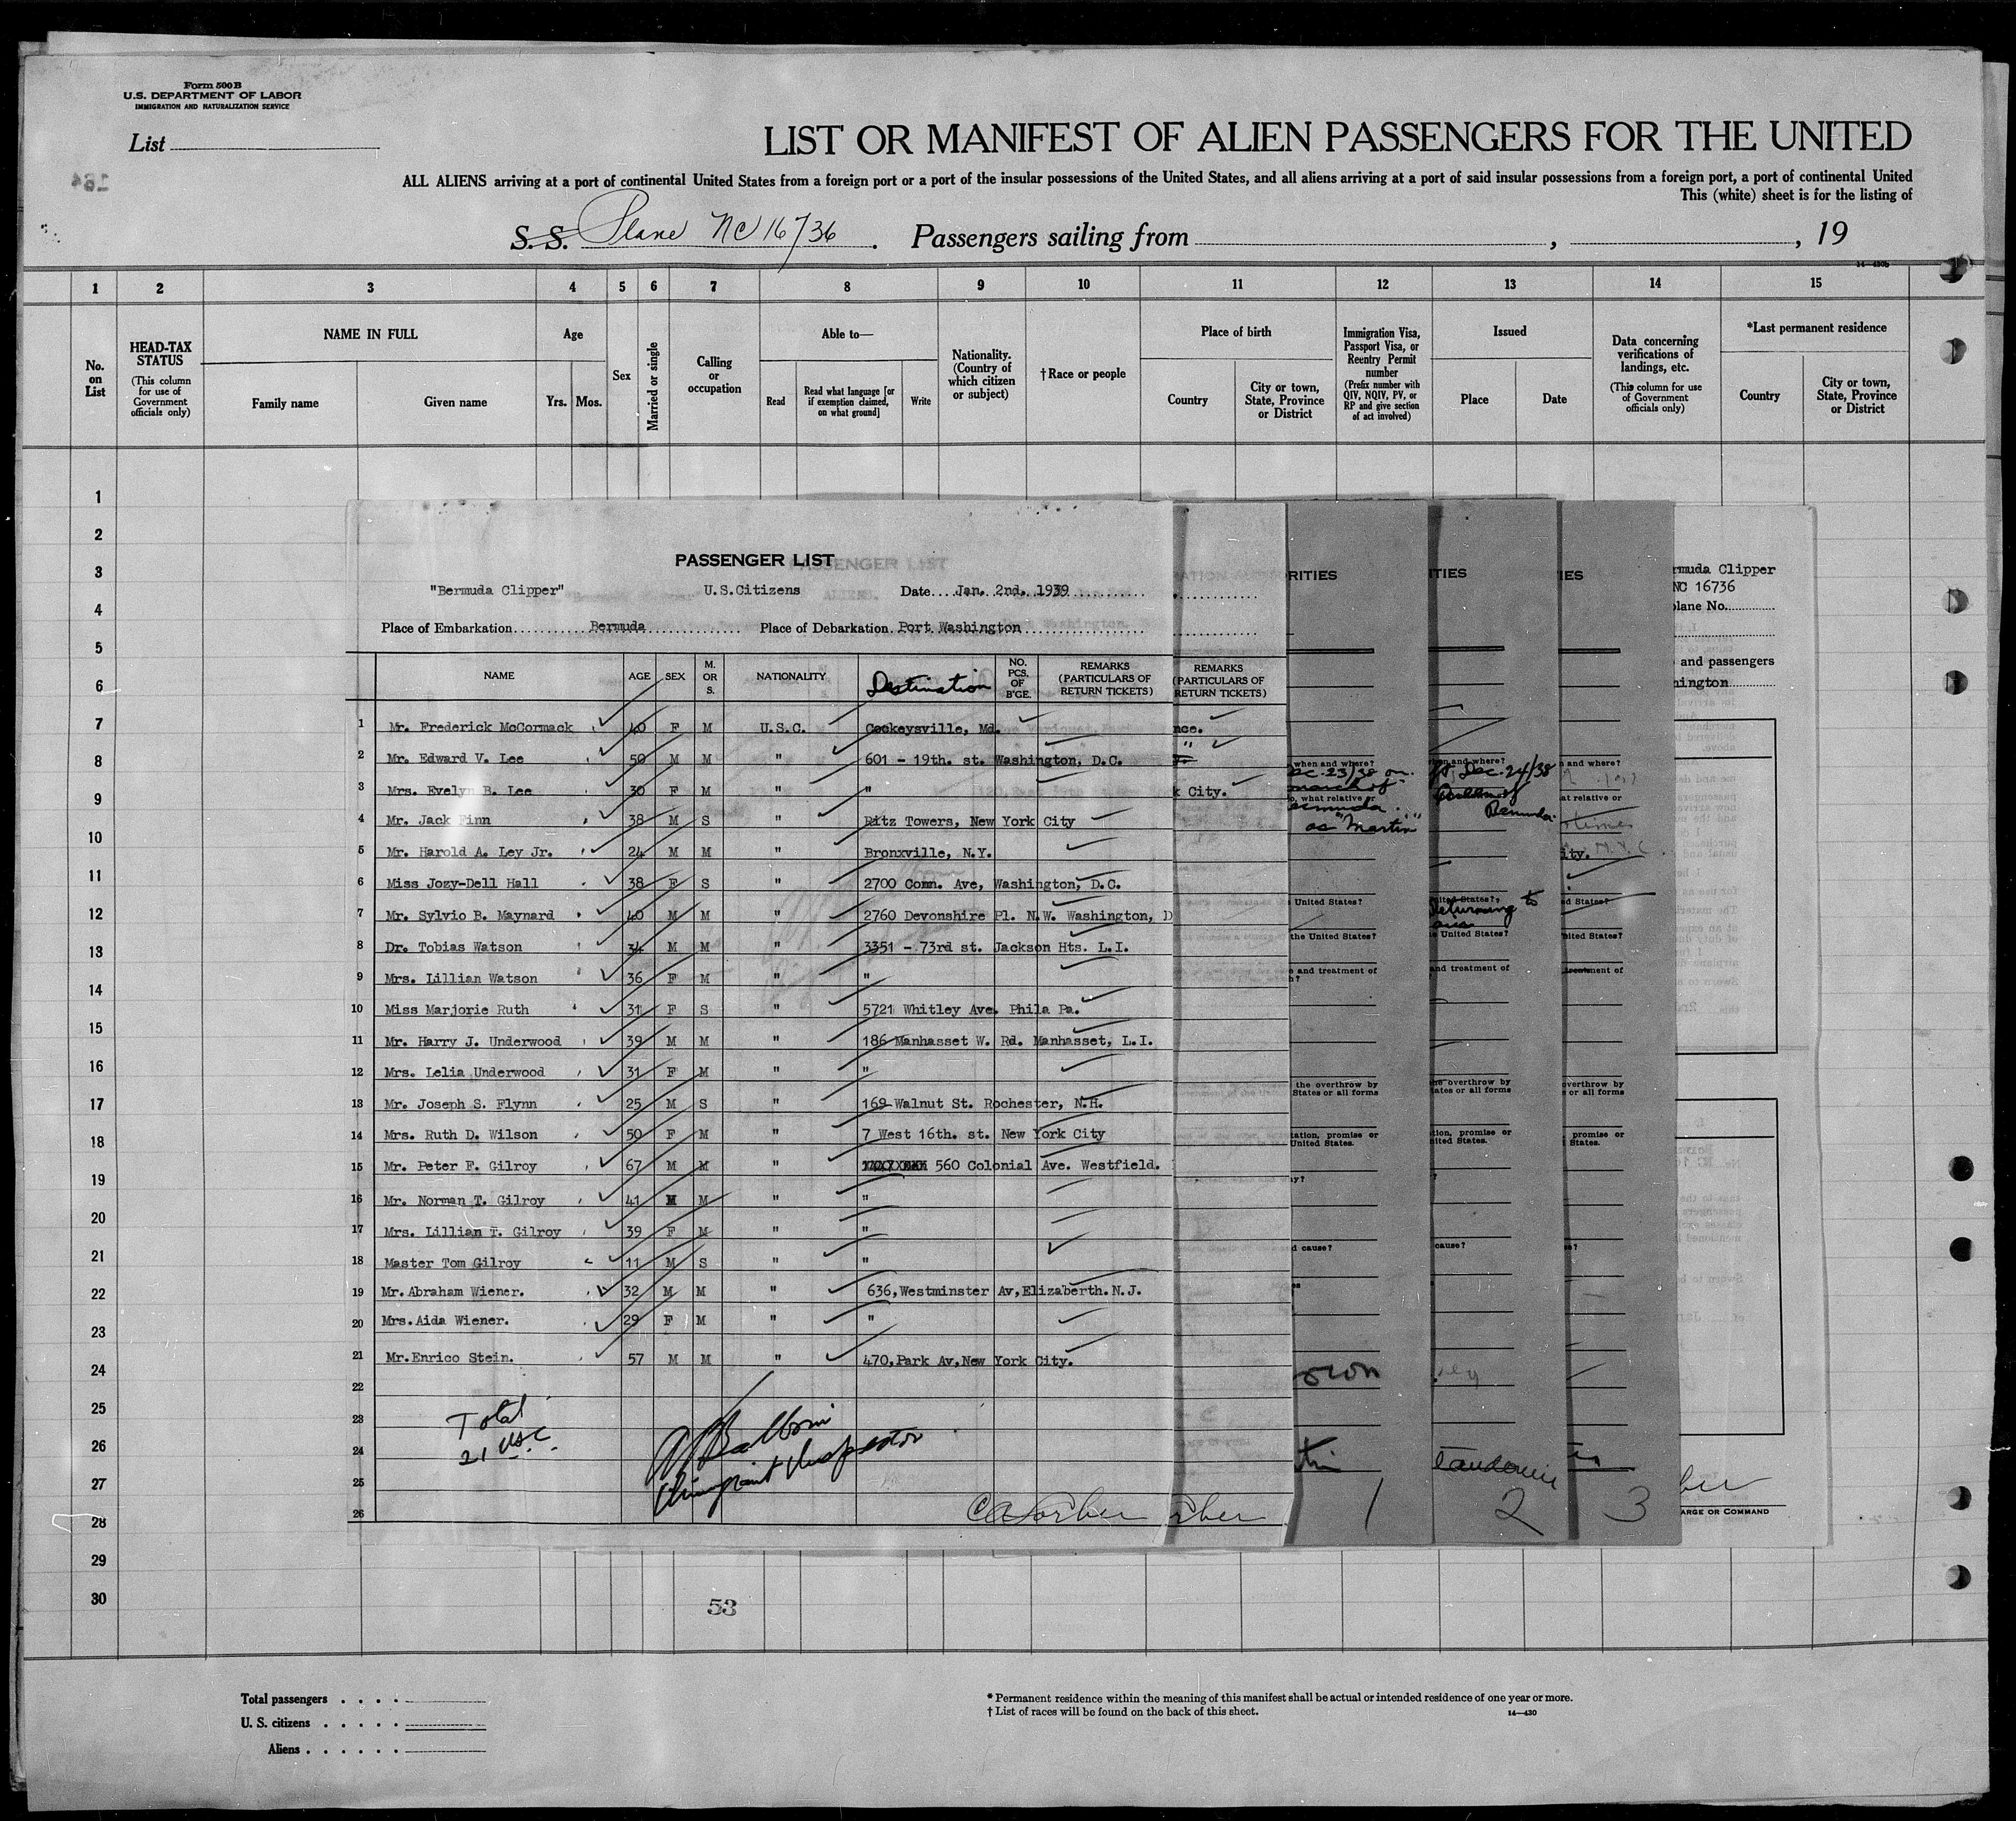 Form 500B
U.S. DEPARTMENT OF LABOR
IMMIGRATION AND NATURALIZATION SERVICE
List
LIST OR MANIFEST OF ALIEN PASSENGERS FOR THE UNITED
ALL ALIENS arriving at a port of continental United States from a foreign port or a port of the insular possessions of the United States, and all aliens arriving at a port of said insular possessions from a foreign port, a port of continental United
This (white) sheet is for the listing of
S.S. Plane NC 16736. Passengers sailing from , , 19
14—430b
1 2 3 4 5 6 7 8 9 10 11 12 13 14 15
No. on List
HEAD-TAX STATUS
(This column for use of Government officials only)
NAME IN FULL
Family name
Given name
Age
Yrs. Mos.
Sex
Married or single
Calling or occupation
Able to—
Read
Read what language [or if exemption claimed, on what ground]
Write
Nationality. (Country of which citizen or subject)
†Race or people
Place of birth
Country
City or town, State, Province or District
Immigration Visa, Passport Visa, or Reentry Permit number
(Prefix number with QIV, NQIV, PV, or RP and give section of act involved)
Issued
Place
Date
Data concerning verifications of landings, etc.
(This column for use of Government officials only)
*Last permanent residence
Country
City or town, State, Province or District
1
2
3
4
5
6
7
8
9
10
11
12
13
14
15
16
17
18
19
20
21
22
23
24
25
26
27
28
29
30
PASSENGER LIST
"Bermuda Clipper" U.S.Citizens Date Jan. 2nd. 1939
Place of Embarkation Bermuda Place of Debarkation Port Washington
NAME AGE SEX M. OR S. NATIONALITY Destination NO. PCS. OF B'GE. REMARKS (PARTICULARS OF RETURN TICKETS)
1 Mr. Frederick McCormack 40 F M U.S.C. Cockeysville, Md.
2 Mr. Edward V. Lee 50 M M " 601 - 19th. st. Washington, D.C.
3 Mrs. Evelyn B. Lee 30 F M " "
4 Mr. Jack Finn 38 M S " Ritz Towers, New York City
5 Mr. Harold A. Ley Jr. 24 M M " Bronxville, N.Y.
6 Miss Jozy-Dell Hall 38 F S " 2700 Conn. Ave, Washington, D.C.
7 Mr. Sylvio B. Maynard 40 M M " 2760 Devonshire Pl. N.W. Washington, D
8 Dr. Tobias Watson 34 M M " 3351 - 73rd st. Jackson Hts. L.I.
9 Mrs. Lillian Watson 36 F M " "
10 Miss Marjorie Ruth 31 F S " 5721 Whitley Ave. Phila Pa.
11 Mr. Harry J. Underwood 39 M M " 186 Manhasset W. Rd. Manhasset, L.I.
12 Mrs. Lelia Underwood 31 F M " "
13 Mr. Joseph S. Flynn 25 M S " 169 Walnut St. Rochester, N.H.
14 Mrs. Ruth D. Wilson 50 F M " 7 West 16th. st. New York City
15 Mr. Peter F. Gilroy 67 M M " 560 Colonial Ave. Westfield.
16 Mr. Norman T. Gilroy 41 M M " "
17 Mrs. Lillian T. Gilroy 39 F M " "
18 Master Tom Gilroy 11 M S " "
19 Mr. Abraham Wiener. 32 M M " 636,Westminster Av,Elizaberth.N.J.
20 Mrs.Aida Wiener. 29 F M " "
21 Mr.Enrico Stein. 57 M M " 470,Park Av,New York City.
22
23
24
25
26
Total
21 USC.
Immigrant Inspector
REMARKS
(PARTICULARS OF
RETURN TICKETS)
nce.
"
k City.
RITIES
when and where?
Dec. 23/38 on
Monarch of
, what relative or
Bermuda.
as "Martin"
United States?
the United States?
and treatment of
the overthrow by
States or all forms
United States.
d cause?
1
ITIES
and where?
Dec. 24/38
Bermuda
Returning to
United States?
and treatment of
overthrow by
tates or all forms
tion, promise or
nited States.
cause?
2
IES
and where?
at relative or
ity. N.Y.C.
ed States?
nited States?
tment of
overthrow by
or all forms
promise or
States.
3
rmuda Clipper
NC 16736
plane No.
and passengers
hington
ARGE OR COMMAND
53
Total passengers
U. S. citizens
Aliens
* Permanent residence within the meaning of this manifest shall be actual or intended residence of one year or more.
† List of races will be found on the back of this sheet.
14—430